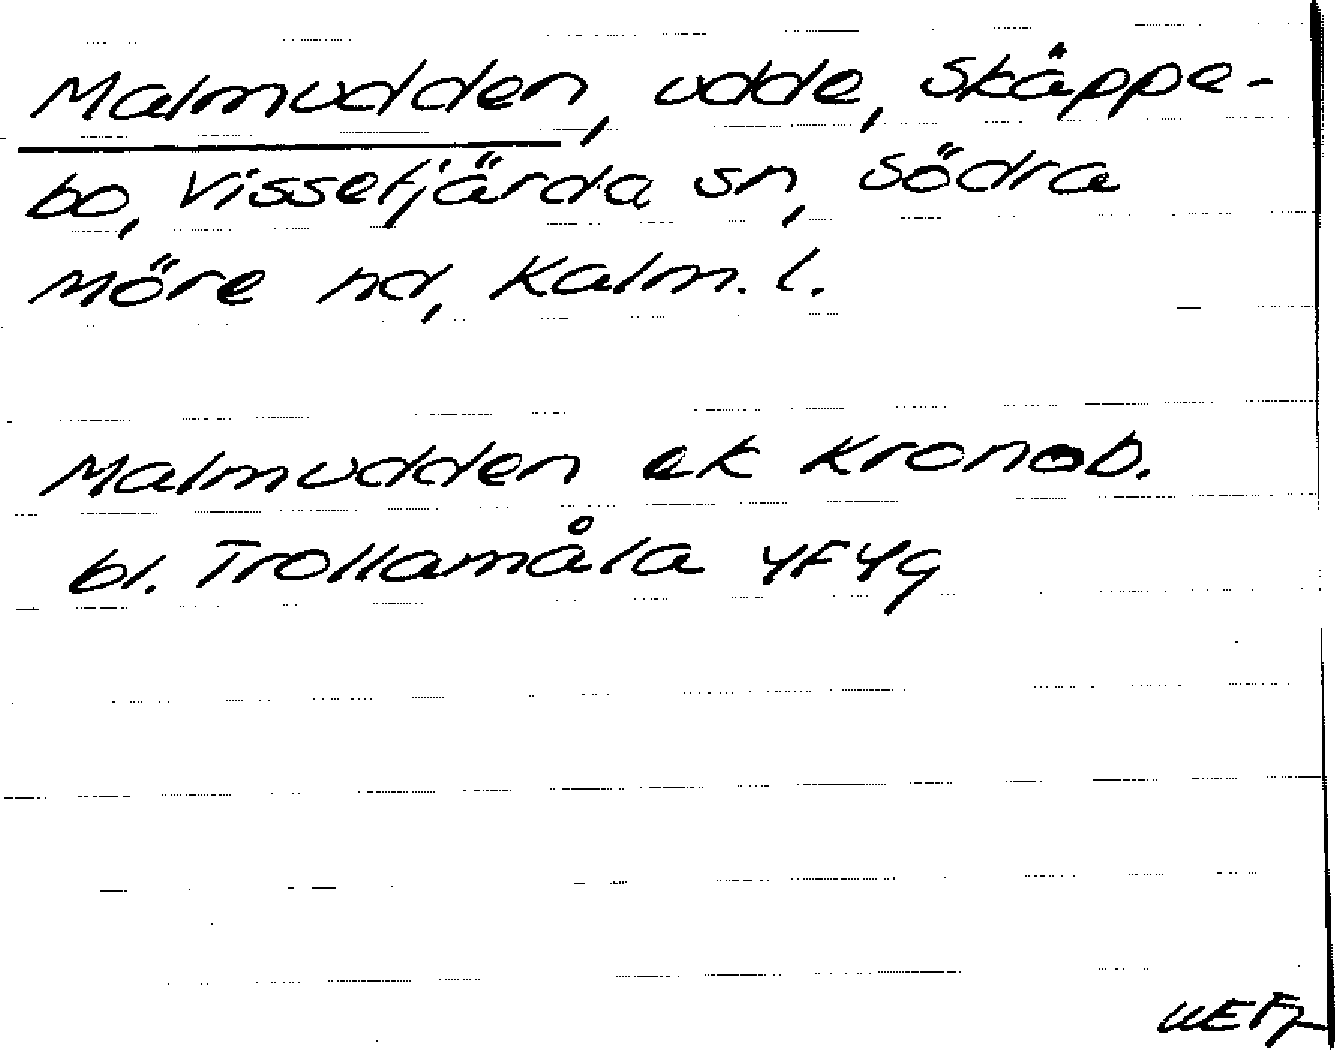 Malmudden, udde, Skäppe-
bo, Vissefjärda sn, Södra
Möre hd, Kalm. l.
Malmudden ek Kronob.
bl. Trollamåla 4F4g